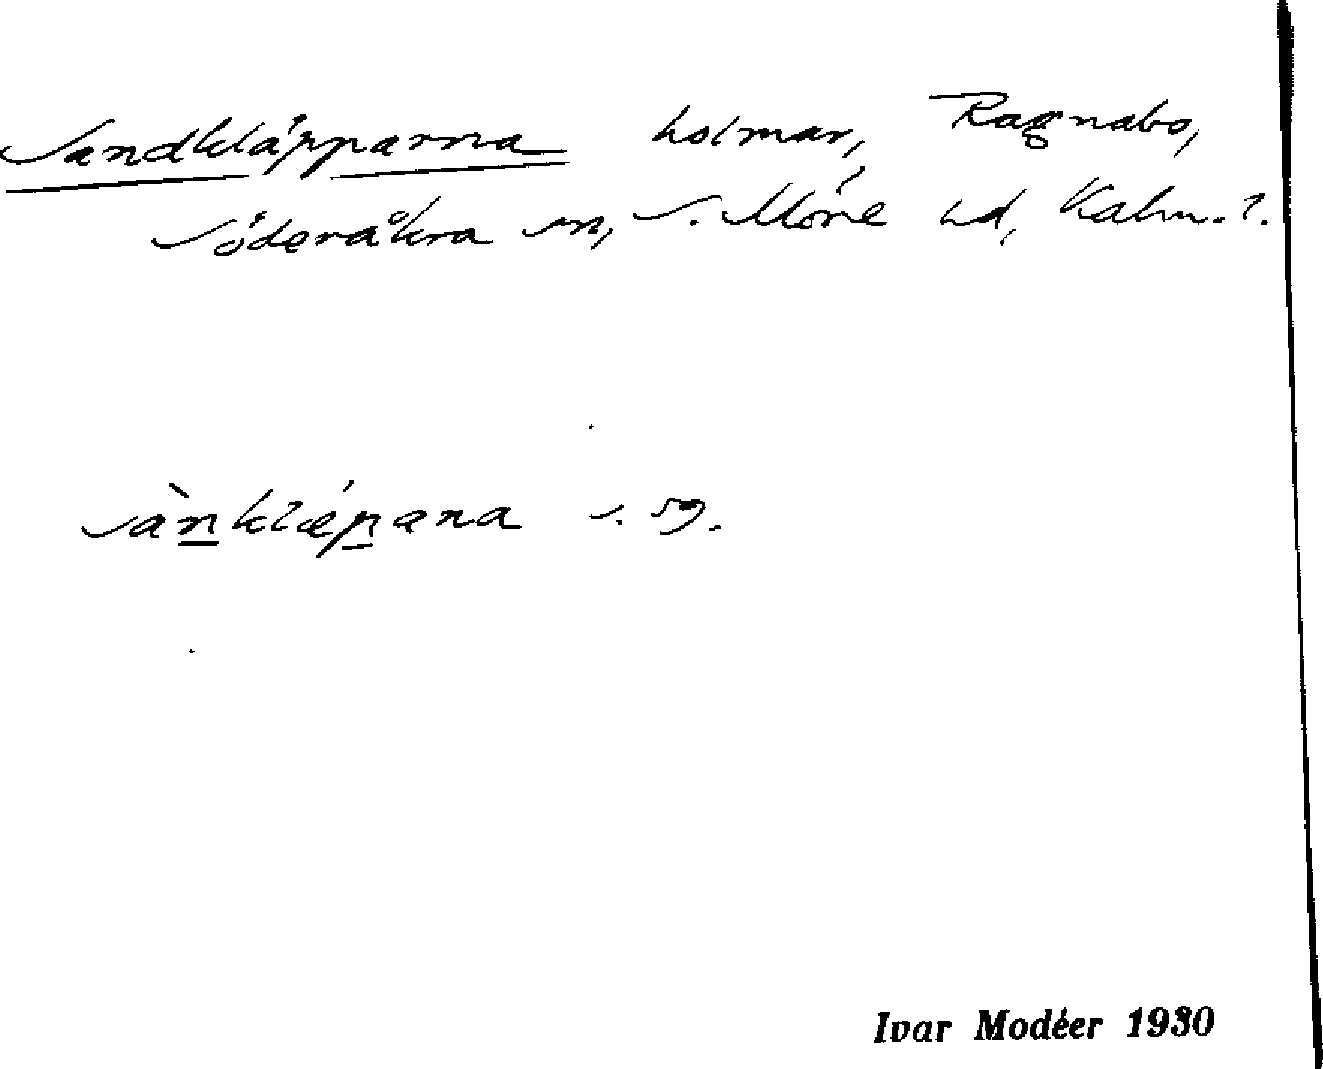 Sandkläpparna holmar, Ragnabo,
Söderåkra sn, S. Möre hd, Kalm. l.
sànklǽpana s. 59.
Ivar Modéer 1930